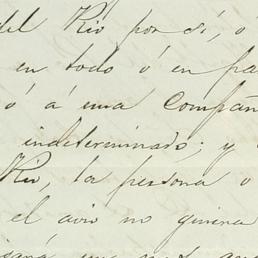 del Rio por sí, ó
en todo ó en pa
ó á una Compañ
indeterminado; y
Rio, la persona o
el avio no quiera